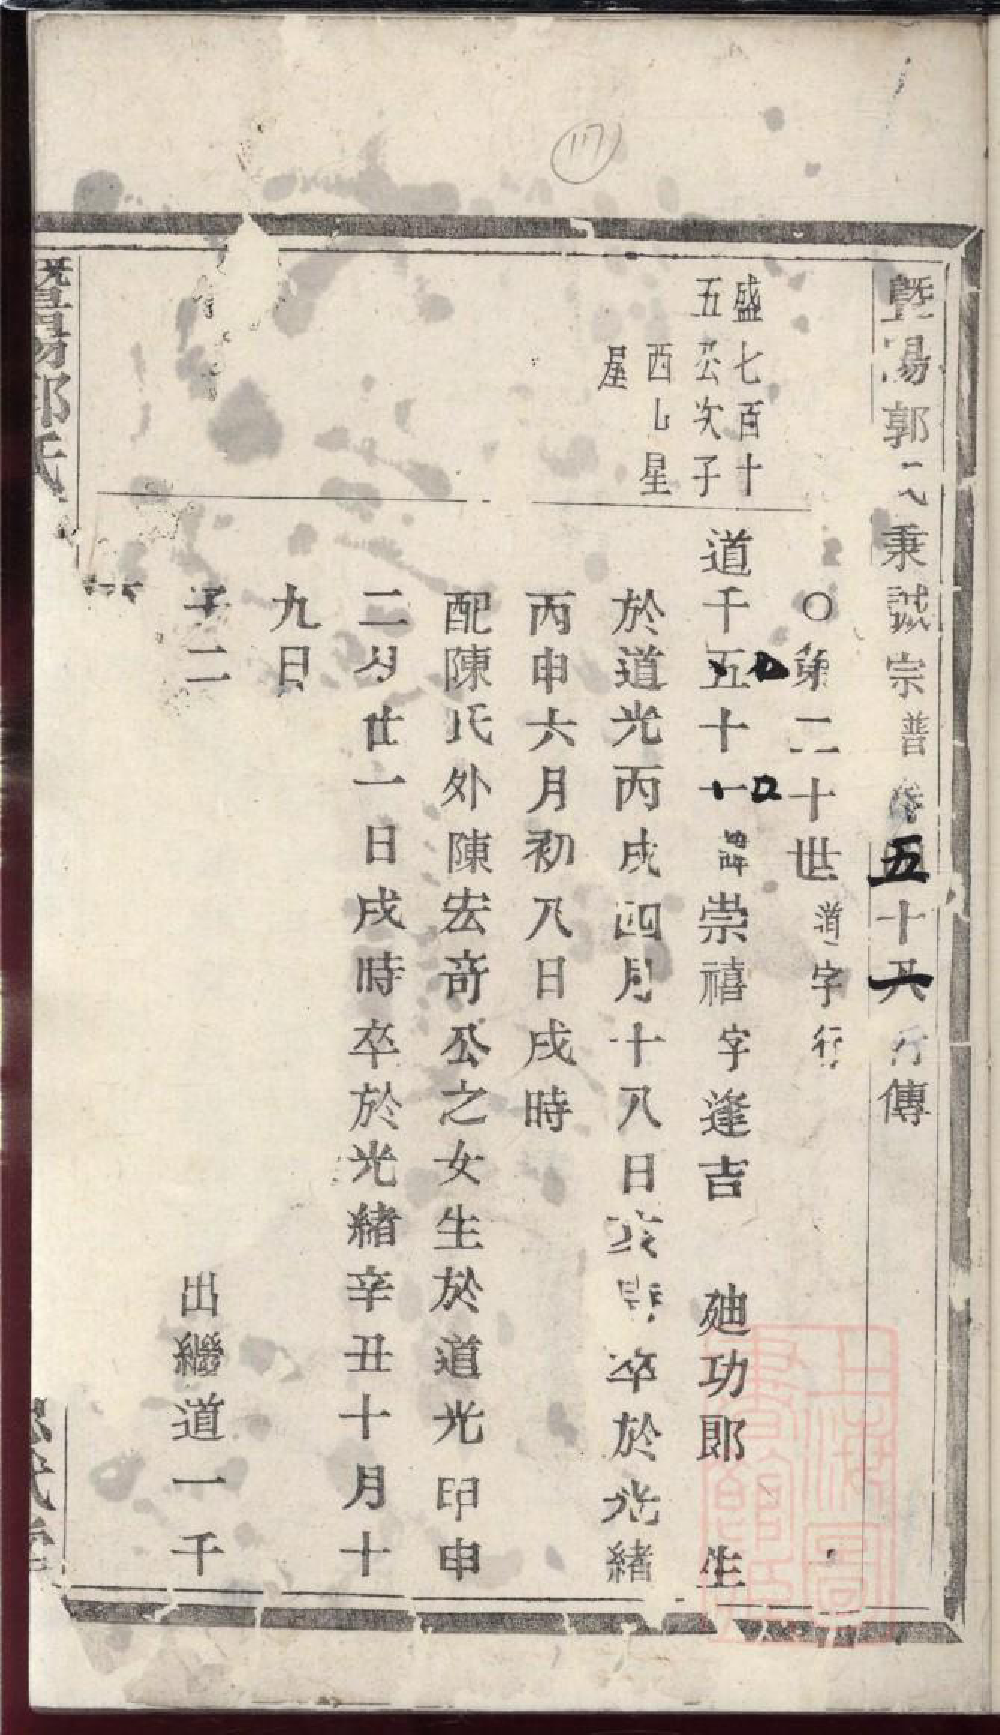 暨陽郭氏秉誠宗譜卷五十六行傳
○第二十世道字行
盛七百十
五公次子
西山星
屋
道千五十一諱崇禧字逢吉 廸功郎 生
於道光丙戌四月十八日亥時卒於光緒
丙申六月初八日戌時
配陳氏外陳宏奇公之女生於道光甲申
二月廿一日戌時卒於光緒辛丑十月十
九日
子二 出繼道一千
暨陽郭氏
117